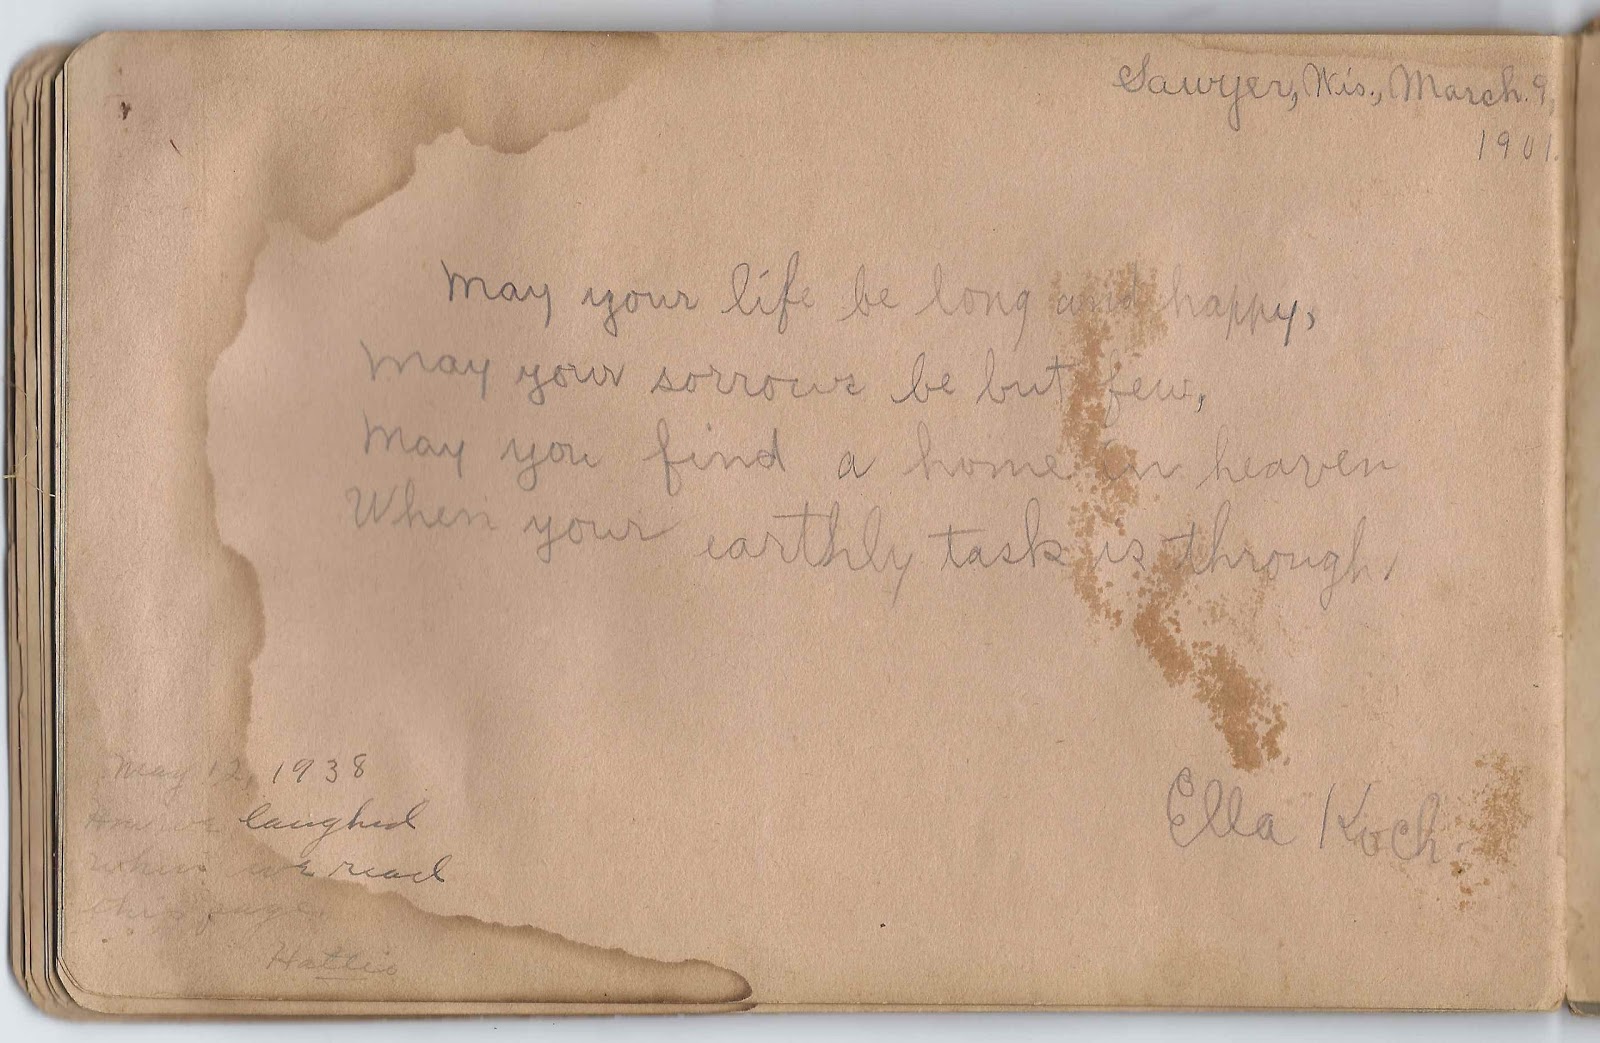 Sawyer, Wis., March. 9,
1901.
May your life be long and happy,
May your sorrows be but few,
May you find a home in heaven
When your earthly task is through.
Ella Koch.
May 12, 1938
How we laughed
when we read
this page.
Hattie